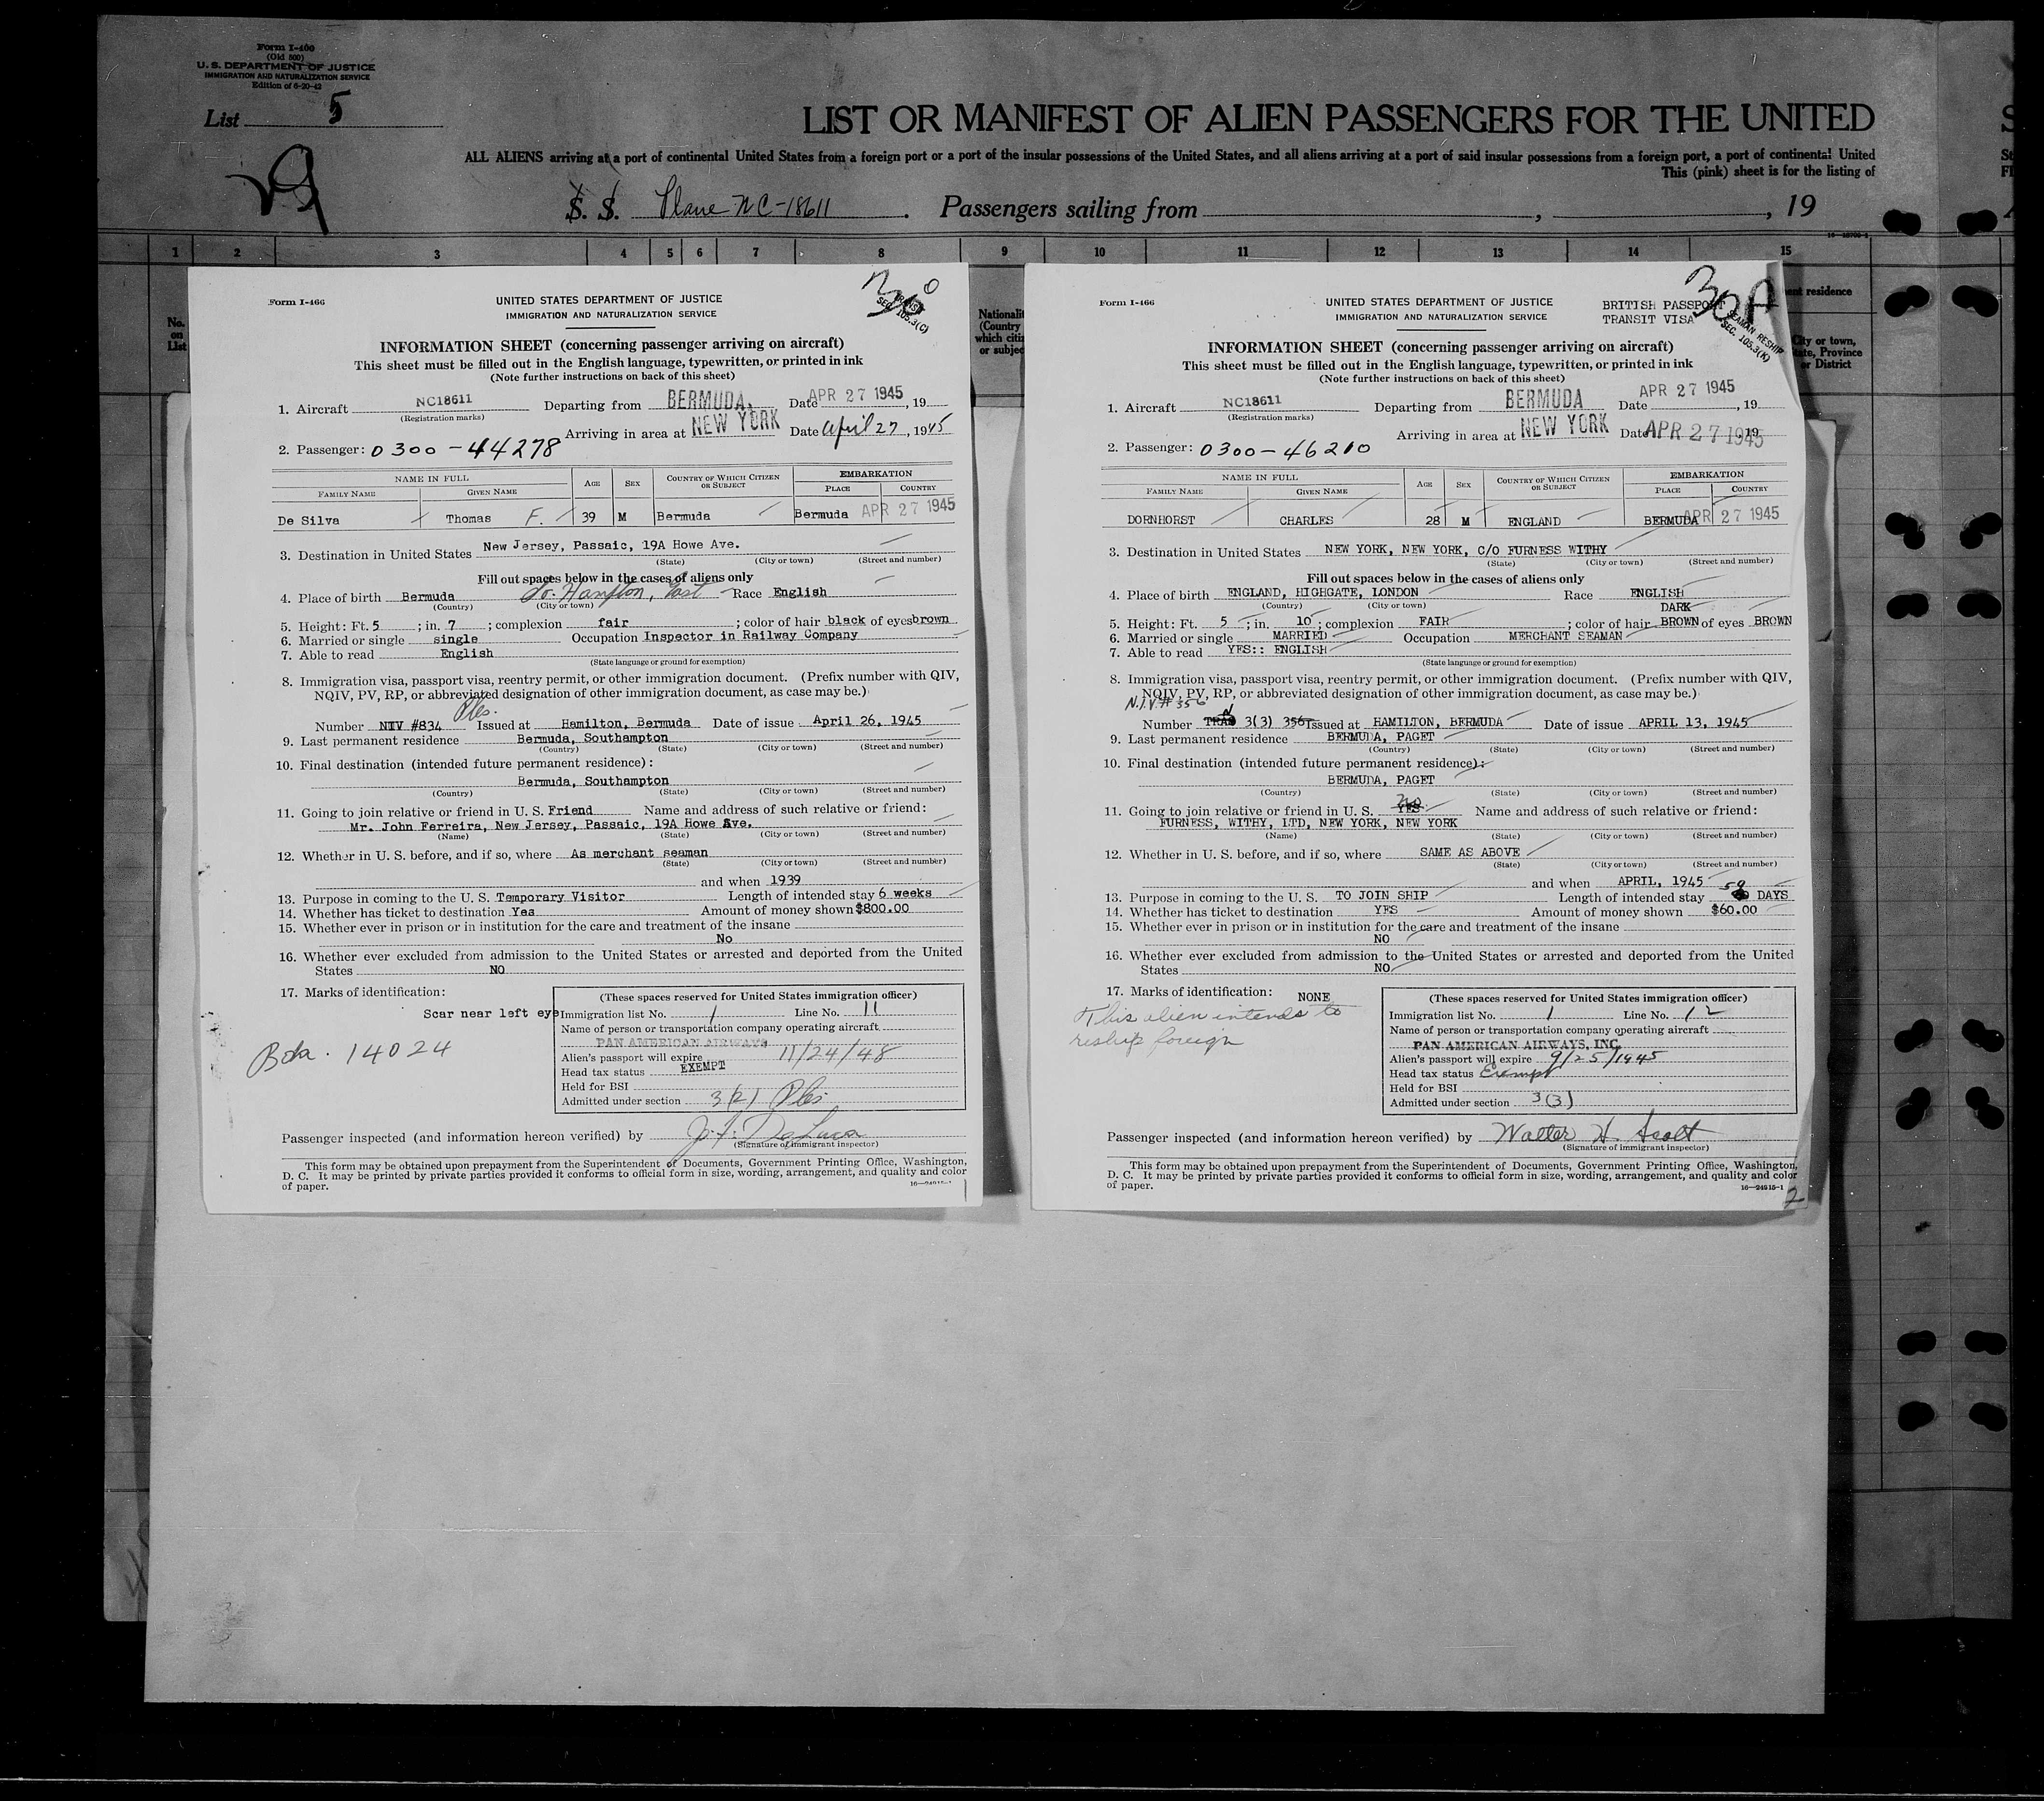 Form I-400
(Old 500)
U. S. DEPARTMENT OF JUSTICE
IMMIGRATION AND NATURALIZATION SERVICE
Edition of 6-20-42
List 5
LIST OR MANIFEST OF ALIEN PASSENGERS FOR THE UNITED
ALL ALIENS arriving at a port of continental United States from a foreign port or a port of the insular possessions of the United States, and all aliens arriving at a port of said insular possessions from a foreign port, a port of continental United
This (pink) sheet is for the listing of
29
S. S. Plane NC-18611. Passengers sailing from , , 19
1 2 3 4 5 6 7 8 9 10 11 12 13 14 15
No.
on
List
Form I-466
UNITED STATES DEPARTMENT OF JUSTICE
IMMIGRATION AND NATURALIZATION SERVICE
TRANSIT
SEC. 105.3(C)
INFORMATION SHEET (concerning passenger arriving on aircraft)
This sheet must be filled out in the English language, typewritten, or printed in ink
(Note further instructions on back of this sheet)
1. Aircraft NC18611 Departing from BERMUDA, Date APR 27 1945, 19
(Registration marks)
Arriving in area at NEW YORK Date April 27, 1945
2. Passenger: 0300-44278
NAME IN FULL AGE SEX COUNTRY OF WHICH CITIZEN OR SUBJECT EMBARKATION
FAMILY NAME GIVEN NAME PLACE COUNTRY
De Silva Thomas F. 39 M Bermuda Bermuda APR 27 1945
3. Destination in United States New Jersey, Passaic, 19A Howe Ave.
(State) (City or town) (Street and number)
Fill out spaces below in the cases of aliens only
4. Place of birth Bermuda So. Hampton, East Race English
(Country) (City or town)
5. Height: Ft. 5; in. 7; complexion fair; color of hair black of eyes brown
6. Married or single single Occupation Inspector in Railway Company
7. Able to read English
(State language or ground for exemption)
8. Immigration visa, passport visa, reentry permit, or other immigration document. (Prefix number with QIV,
NQIV, PV, RP, or abbreviated designation of other immigration document, as case may be.)
Number NIV #834 Issued at Hamilton, Bermuda Date of issue April 26, 1945
9. Last permanent residence Bermuda, Southampton
(Country) (State) (City or town) (Street and number)
10. Final destination (intended future permanent residence):
Bermuda, Southampton
(Country) (State) (City or town) (Street and number)
11. Going to join relative or friend in U. S. Friend Name and address of such relative or friend:
Mr. John Ferreira, New Jersey, Passaic, 19A Howe Ave.
(Name) (State) (City or town) (Street and number)
12. Whether in U. S. before, and if so, where As merchant seaman
(State) (City or town) (Street and number)
and when 1939
13. Purpose in coming to the U. S. Temporary Visitor Length of intended stay 6 weeks
14. Whether has ticket to destination Yes Amount of money shown $800.00
15. Whether ever in prison or in institution for the care and treatment of the insane
No
16. Whether ever excluded from admission to the United States or arrested and deported from the United
States NO
17. Marks of identification:
Scar near left eye
Bda. 14024
(These spaces reserved for United States immigration officer)
Immigration list No. 1 Line No. 11
Name of person or transportation company operating aircraft
PAN AMERICAN AIRWAYS
Alien's passport will expire 11/24/48
Head tax status EXEMPT
Held for BSI
Admitted under section 3(2)
Passenger inspected (and information hereon verified) by J. F. DeLuca
(Signature of immigrant inspector)
This form may be obtained upon prepayment from the Superintendent of Documents, Government Printing Office, Washington,
D. C. It may be printed by private parties provided it conforms to official form in size, wording, arrangement, and quality and color
of paper. 16—24915-1
Nationality
(Country
which citiz
or subjec
Form I-466
UNITED STATES DEPARTMENT OF JUSTICE
IMMIGRATION AND NATURALIZATION SERVICE
BRITISH PASSPORT
TRANSIT VISA
30A
SEAMAN RESHIP
SEC. 105.3(K)
INFORMATION SHEET (concerning passenger arriving on aircraft)
This sheet must be filled out in the English language, typewritten, or printed in ink
(Note further instructions on back of this sheet)
1. Aircraft NC18611 Departing from BERMUDA Date APR 27 1945, 19
(Registration marks)
Arriving in area at NEW YORK Date APR 27 1945, 19
2. Passenger: 0300-46210
NAME IN FULL AGE SEX COUNTRY OF WHICH CITIZEN OR SUBJECT EMBARKATION
FAMILY NAME GIVEN NAME PLACE COUNTRY
DORNHORST CHARLES 28 M ENGLAND BERMUDA APR 27 1945
3. Destination in United States NEW YORK, NEW YORK, C/O FURNESS WITHY
(State) (City or town) (Street and number)
Fill out spaces below in the cases of aliens only
4. Place of birth ENGLAND, HIGHGATE, LONDON Race ENGLISH
(Country) (City or town)
DARK
5. Height: Ft. 5; in. 10; complexion FAIR; color of hair BROWN of eyes BROWN
6. Married or single MARRIED Occupation MERCHANT SEAMAN
7. Able to read YES:: ENGLISH
(State language or ground for exemption)
8. Immigration visa, passport visa, reentry permit, or other immigration document. (Prefix number with QIV,
NQIV, PV, RP, or abbreviated designation of other immigration document, as case may be.)
N.I.V. # 356
Number 3(3) 356 Issued at HAMILTON, BERMUDA Date of issue APRIL 13, 1945
9. Last permanent residence BERMUDA, PAGET
(Country) (State) (City or town) (Street and number)
10. Final destination (intended future permanent residence):
BERMUDA, PAGET
(Country) (State) (City or town) (Street and number)
11. Going to join relative or friend in U. S. YES no Name and address of such relative or friend:
FURNESS, WITHY, LTD, NEW YORK, NEW YORK
(Name) (State) (City or town) (Street and number)
12. Whether in U. S. before, and if so, where SAME AS ABOVE
(State) (City or town) (Street and number)
and when APRIL, 1945
13. Purpose in coming to the U. S. TO JOIN SHIP Length of intended stay 59 DAYS
14. Whether has ticket to destination YES Amount of money shown $60.00
15. Whether ever in prison or in institution for the care and treatment of the insane
NO
16. Whether ever excluded from admission to the United States or arrested and deported from the United
States NO
17. Marks of identification: NONE
This alien intends to
reship foreign
(These spaces reserved for United States immigration officer)
Immigration list No. 1 Line No. 12
Name of person or transportation company operating aircraft
PAN AMERICAN AIRWAYS, INC
Alien's passport will expire 9/25/1945
Head tax status Exempt
Held for BSI
Admitted under section 3(3)
Passenger inspected (and information hereon verified) by Walter H. Scott
(Signature of immigrant inspector)
This form may be obtained upon prepayment from the Superintendent of Documents, Government Printing Office, Washington,
D. C. It may be printed by private parties provided it conforms to official form in size, wording, arrangement, and quality and color
of paper. 16—24915-1
2
residence
City or town,
State, Province
or District